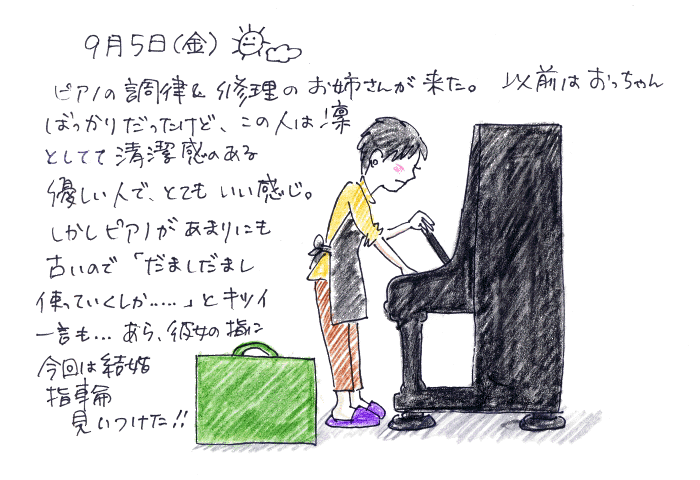 9月5日(金)
ピアノの調律&修理のお姉さんが来た。以前はおっちゃん
ばっかりだったけど、この人は凛
としてて清潔感のある
優しい人で、とてもいい感じ。
しかしピアノがあまりにも
古いので「だましだまし
使っていくしか.....」とキツイ
一言も... あら、彼女の指に
今回は結婚
指輪
見いつけた!!